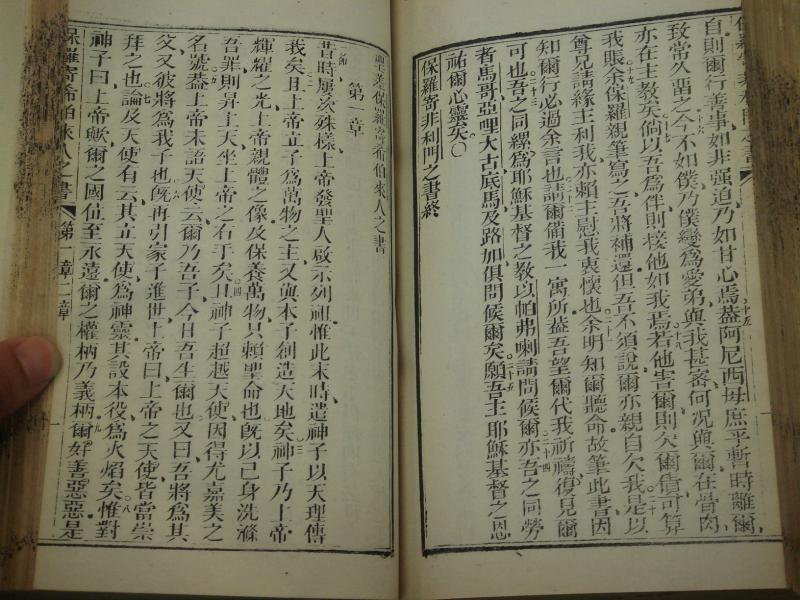 自則爾行善事如非强迫乃如甘心焉蓋阿尼西母庶乎暫時離爾
致常久畱之今不如僕乃僕變為愛弟與我甚密何况與爾在骨肉
亦在主教矣倘以吾為伴則接他如我焉若他害爾則欠爾債可算
我賬余保羅親筆寫之吾將補還但吾不須說爾亦親自欠我是以
尊兄請緣主利我亦賴主慰我衷懷也余明知爾聽命故筆此書因
知爾行必過余言也請爾備我一寓所蓋吾望爾代我祈禱復見爾
可也吾之同縲為耶穌基督之教以帕弗喇請問候爾亦吾之同勞
者馬哥亞哩大古底馬及路加俱問候爾矣願吾主耶穌基督之恩
祐爾心靈矣
保羅寄非利門之書終
差保羅寄希伯來人之書
第一章
昔時屢次殊樣上帝發聖人啟示列祖惟此末時遣神子以天理傳
我矣且上帝立子為萬物之主又與本子創造天地矣神子乃上帝
輝耀之光上帝親體之像及保養萬物只賴聖命也既以己身洗滌
吾罪則昇上天坐上帝之右手矣且神子超越天使因得尤嘉美之
名號蓋上帝未語天使云爾乃吾子今日吾生爾也又曰吾將為其
父又彼將為我子也既再引家子進世上帝曰上帝之天使皆當崇
拜之也論及天使有云其立天使為神靈其設本役為火焰矣惟對
神子曰上帝歟爾之國位至永遠爾之權柄乃義柄爾好善惡惡是
保羅寄希伯來人之書 第一章二章